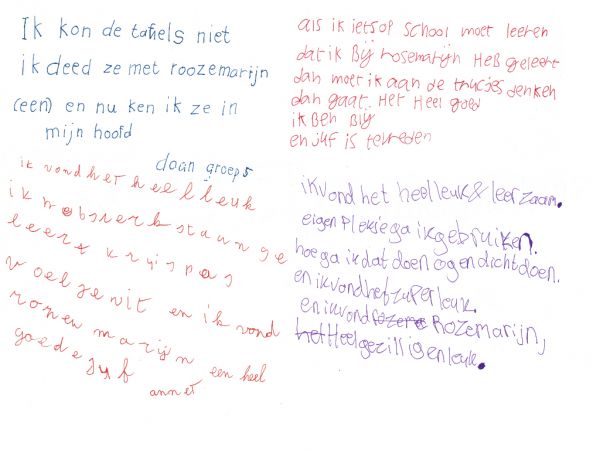 Ik kon de tafels niet
ik deed ze met roozemarijn
(een) en nu ken ik ze in
mijn hoofd
daan groep 5
als ik iets op school moet leeren
dat ik Bij rosemarijn HeB geleert
dan moet ik aan de trucjes denken
dan gaat. Het Heel goed
ik Ben Blij
en juf is tevreden
ik vond het heel leuk
ik heb sverk staan ge
leert kruispas
voel je nit en ik vond
rozen marijn
goede juf een heel
annet
ik vond het heel leuk & leerzaam.
eigen plekje ga ik gebruiken.
hoe ga ik dat doen ogen dicht doen.
en ik vond het zuper leuk.
en ik vond Rozemarijn,
het Heel gezillig en leuk.